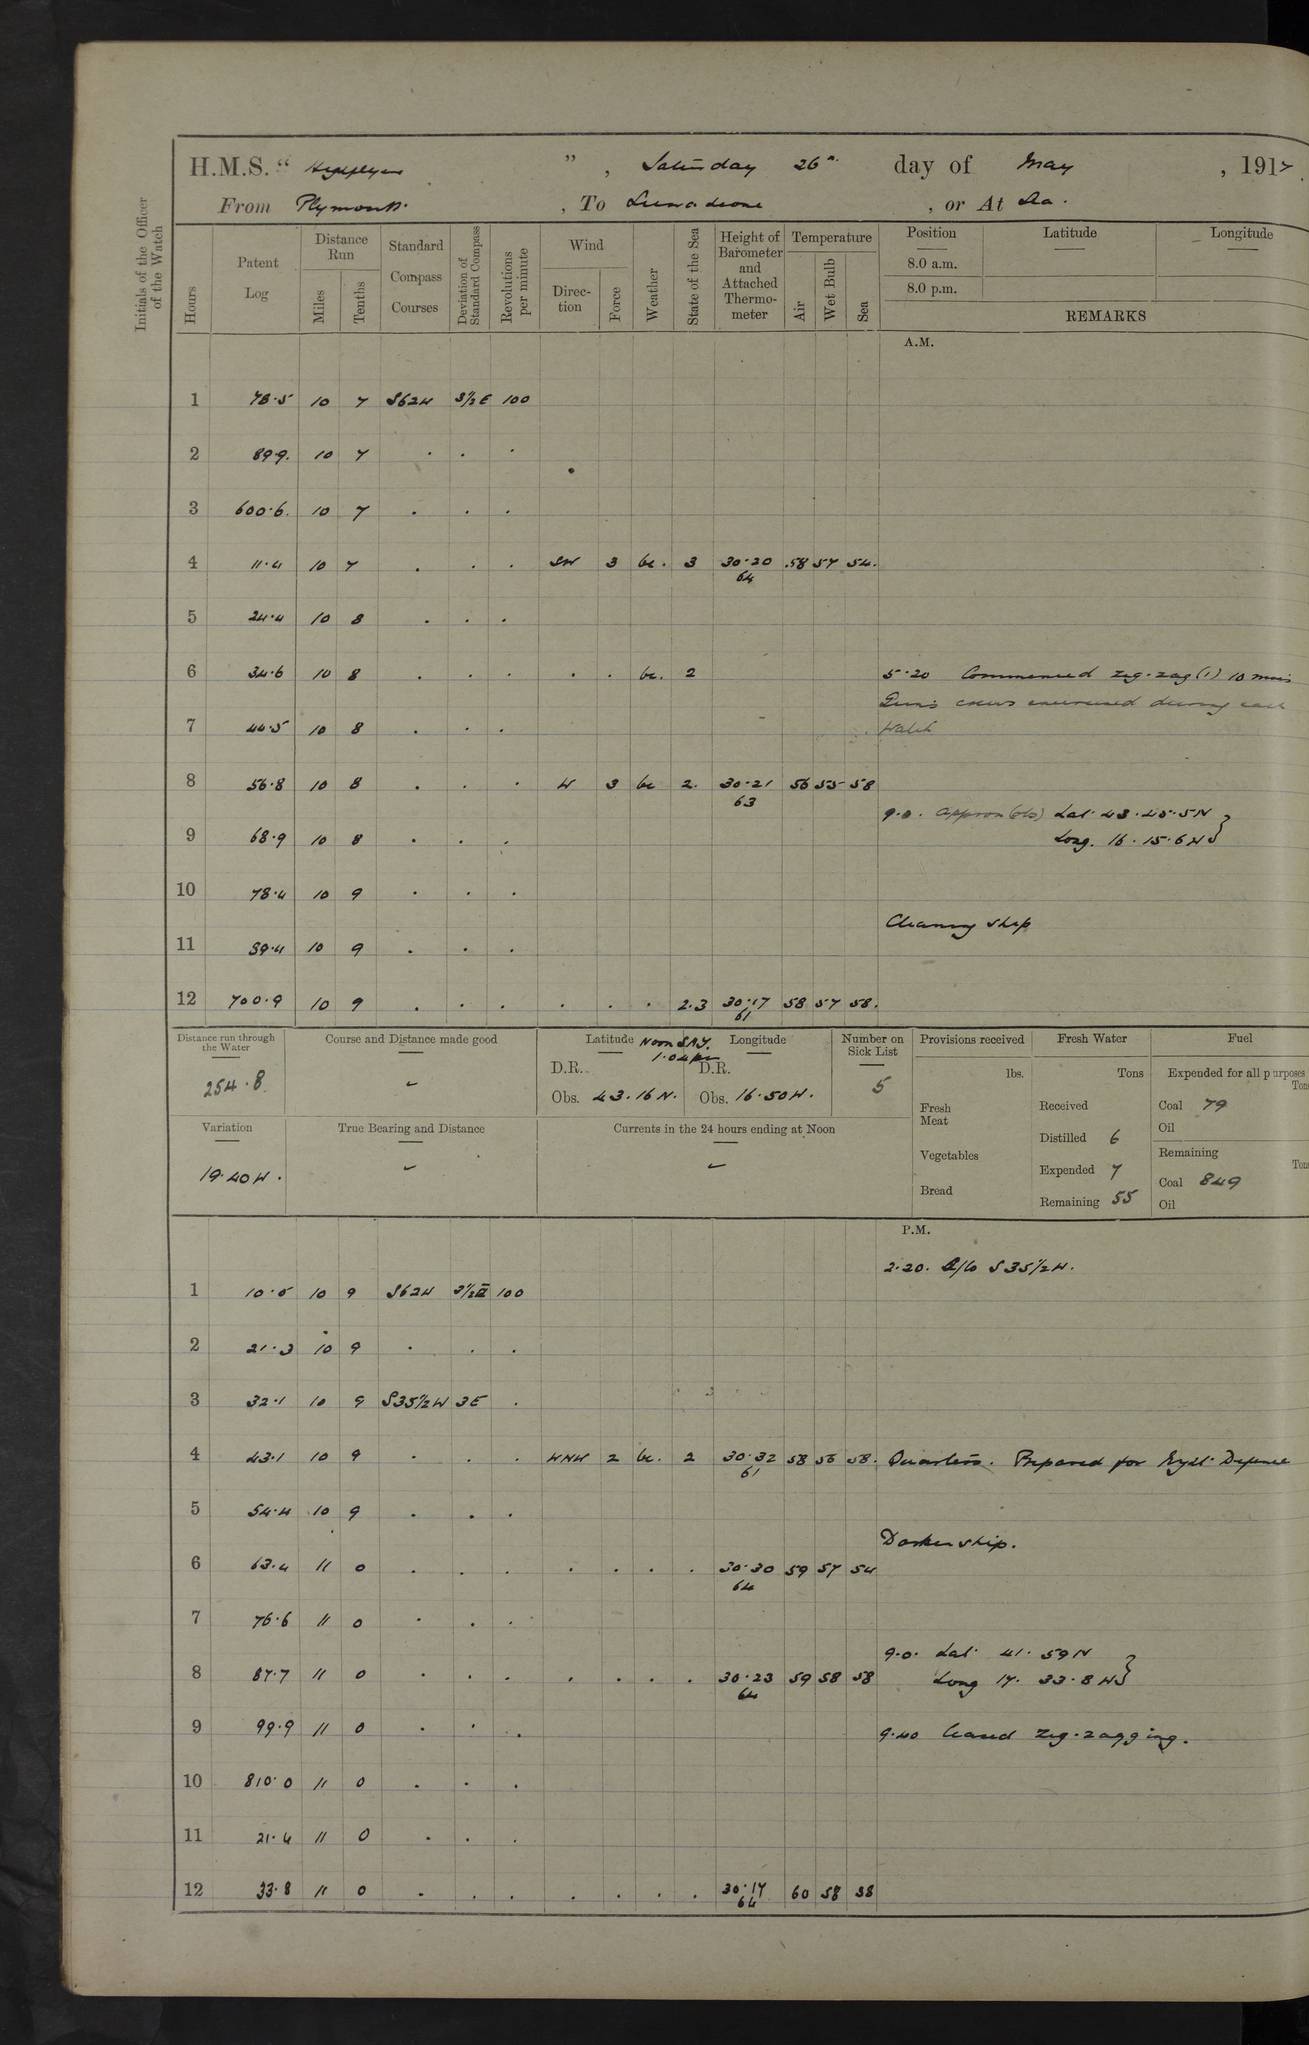 H.M.S. “ ” , Saturday 26th day of May , 1917
From Plymouth. , To , or At Sea.
Initials of the Officer of the Watch
Hours
Patent Log
Distance Run
Miles
Tenths
Standard Compass Courses
Deviation of Standard Compass
Revolutions per minute
Wind
Direction
Force
Weather
State of the Sea
Height of Barometer and Attached Thermometer
Temperature
Air
Wet Bulb
Sea
Position Latitude Longitude
8.0 a.m.
8.0 p.m.
REMARKS
A.M.
1 78.5 10 7 S62W 3½E 100
2 89.9. 10 7 . . .
3 600.6. 10 7 . . .
4 11.4 10 7 . . . SW 3 bc. 3 30.20 58 57 54.
64
5 24.4 10 8 . . .
6 34.6 10 8 . . . . . bc. 2 5.20 Commenced zig-zag (1) 10 mins
Guns crews exercised during each
7 44.5 10 8 . . . Watch
8 56.8 10 8 . . . W 3 bc 2. 30.21 56 55 58
63
9.0. approx (obs) Lat 43.45.5N }
9 68.9 10 8 . . . Long. 16.15.6W }
10 78.4 10 9 . . .
Cleaning ship
11 89.4 10 9 . . .
12 700.9 10 9 . . . . . . 2.3 30.17 58 57 58.
61
Distance run through the Water
254.8
Course and Distance made good
✓
Latitude Noon SAT. Longitude
1.04pm
D.R. D.R.
Obs. 43.16N. Obs. 16.50W.
Number on Sick List
5
Provisions received
lbs.
Fresh Meat
Vegetables
Bread
Fresh Water
Tons
Received
Distilled 6
Expended 7
Remaining 55
Fuel
Expended for all purposes
Tons
Coal 79
Oil
Remaining
Tons
Coal 849
Oil
Variation
19.40W.
True Bearing and Distance
✓
Currents in the 24 hours ending at Noon
✓
P.M.
2.20. A/Co S35½W.
1 10.5 10 9 S62W 3½E 100
2 21.3 10 9 . . .
3 32.1 10 9 S35½W 3E .
4 43.1 10 9 . . . WNW 2 bc. 2 30.32 58 56 58. Quarters. Prepared for Night Defence
61
5 54.4 10 9 . . .
Darken ship.
6 63.4 11 0 . . . . . . . 30.30 59 57 54
64
7 76.6 11 0 . . .
9.0. Lat 41.59N }
8 87.7 11 0 . . . . . . . 30.23 59 58 58 Long 17.33.8W }
64
9 99.9 11 0 . . . 9.40 Ceased zig-zagging.
10 810.0 11 0 . . .
11 21.4 11 0 . . .
12 33.8 11 0 . . . . . . . 30.17 60 58 58
64